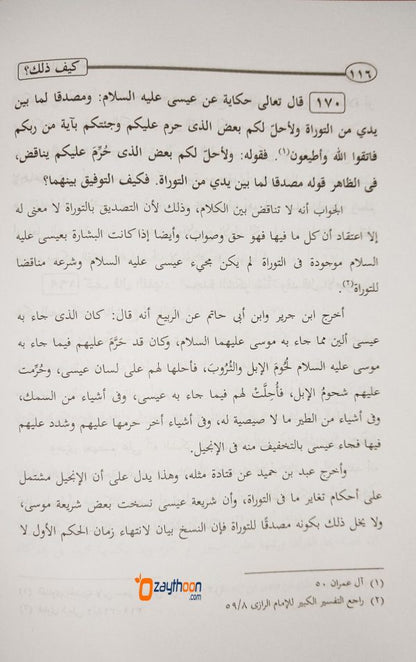 ١١٦
كيف ذلك؟
١٧٠ قال تعالى حكاية عن عيسى عليه السلام: ومصدقا لما بين
يدي من التوراة ولأحلّ لكم بعض الذى حرم عليكم وجئتكم بآية من ربكم
فاتقوا الله وأطيعون(١). فقوله: ولأحلّ لكم بعض الذى حُرِّمَ عليكم يناقض،
فى الظاهر قوله مصدقا لما بين يدي من التوراة. فكيف التوفيق بينهما؟
الجواب أنه لا تناقض بين الكلام، وذلك لأن التصديق بالتوراة لا معنى له
إلا اعتقاد أن كل ما فيها فهو حق وصواب، وأيضا إذا كانت البشارة بعيسى عليه
السلام موجودة فى التوراة لم يكن مجيء عيسى عليه السلام وشرعه مناقضا
للتوراة(٢).
أخرج ابن جرير وابن أبي حاتم عن الربيع أنه قال: كان الذى جاء به
عيسى ألين مما جاء به موسى عليهما السلام، وكان قد حَرَّمَ عليهم فيما جاء به
موسى عليه السلام لُحُومَ الإبل والثُرُوبَ، فأحلها لهم على لسان عيسى، وحُرِّمت
عليهم شحومُ الإبل، فأُحِلَّتْ لهم فيما جاء به عيسى، وفى أشياء من السمك،
وفى أشياء من الطير ما لا صيصية له، وفى أشياء أخر حرمها عليهم وشدد عليهم
فيها فجاء عيسى بالتخفيف منه فى الإنجيل.
وأخرج عبد بن حميد عن قتادة مثله، وهذا يدل على أن الإنجيل مشتمل
على أحكام تغاير ما فى التوراة، وأن شريعة عيسى نسخت بعض شريعة موسى،
ولا يخل ذلك بكونه مصدقًا للتوراة فإن النسخ بيان لانتهاء زمان الحكم الأول لا
(١) آل عمران ٥٠
(٢) راجع التفسير الكبير للإمام الرازى ٥٩/٨
Ozaythoon
.com